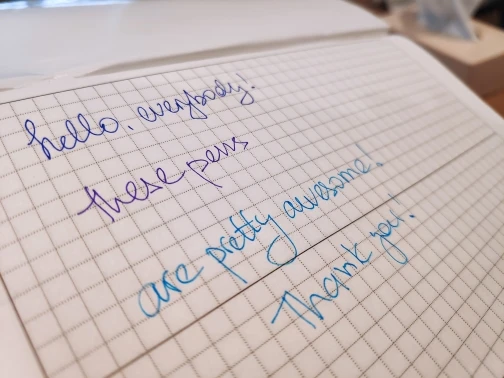 hello. everybody!
these pens
are pretty awesome!
Thank you!